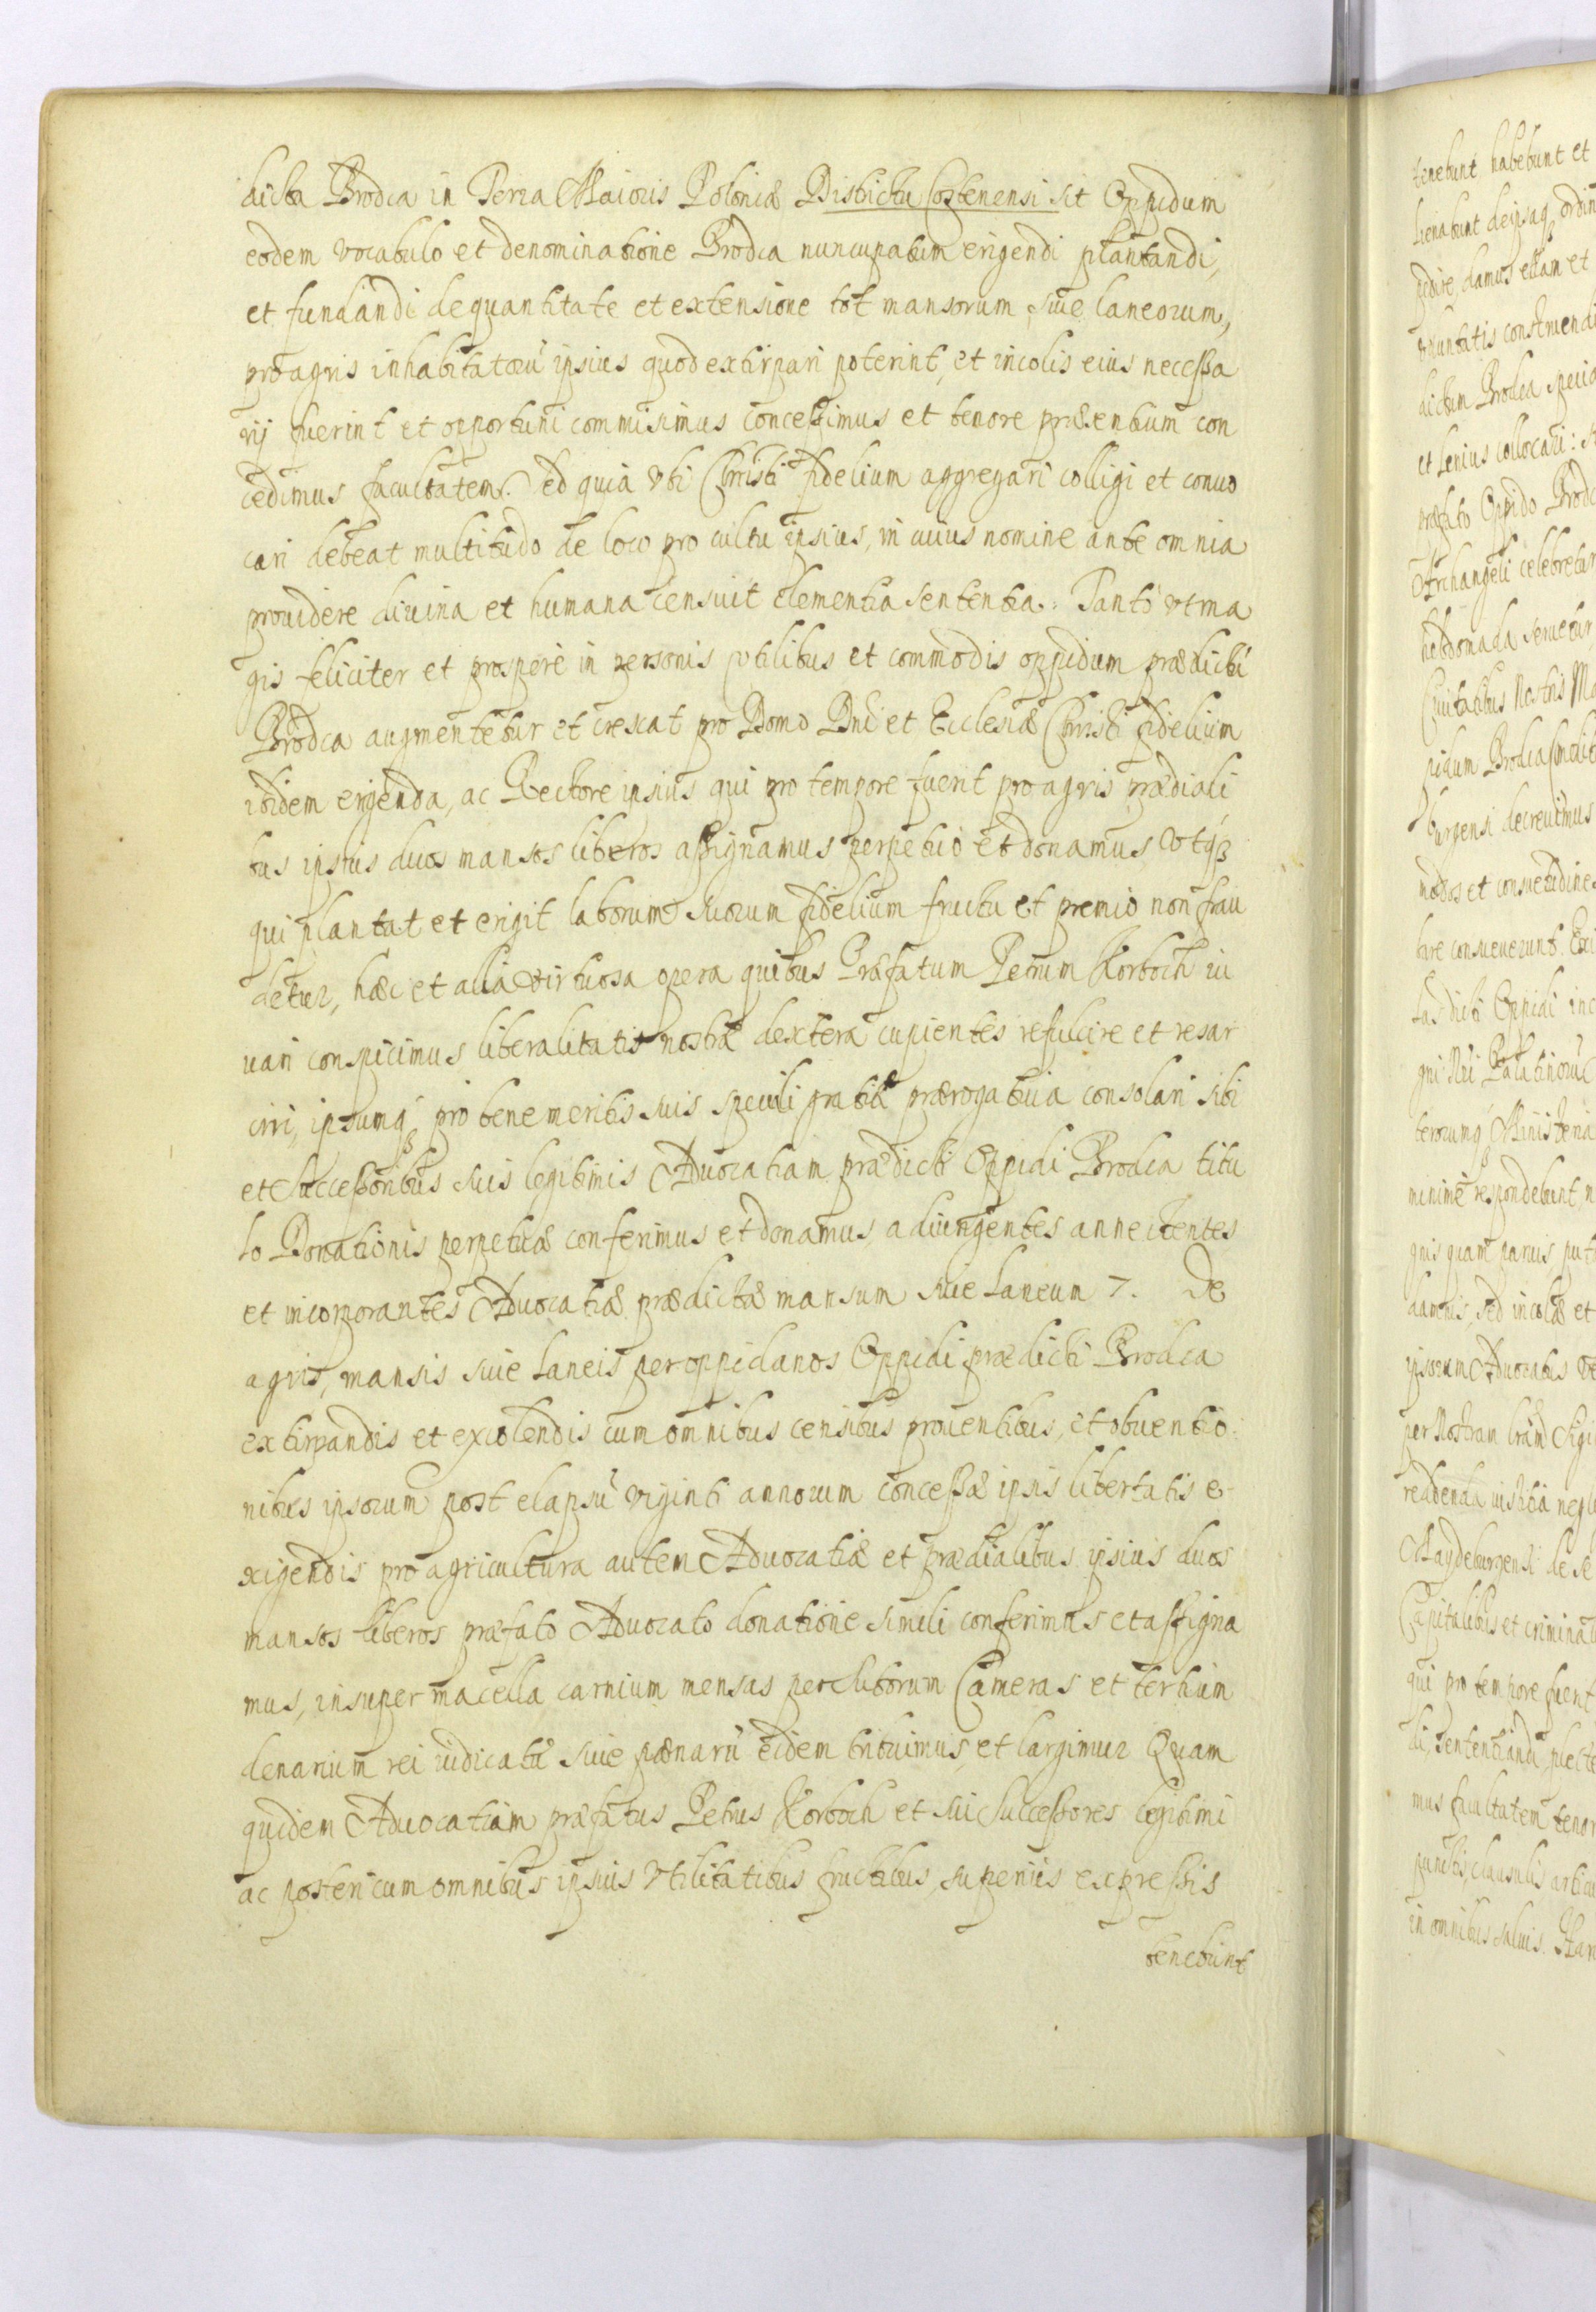 dicta Brodca in Terra Maioris Poloniæ Districtu Costenensi sit Oppidum
eodem vocabulo et denominatione Brodca nuncupatum erigendi plantandi,
et fundandi de quantitate et extensione tot mansorum siue laneorum,
pro agris inhabitatorū ipsius quod extirpari poterint, et incolis eius necessa
rij fuerint et opportuni commisimus concessimus et tenore præsentium con
cedimus facultatem. Sed quia vbi Christi fidelium aggregari colligi et conuo
cari debeat multitudo de loco pro cultu ipsius, in cuius nomine ante omnia
prouidere diuina et humana censuit clementia sententia. Tanto vt ma
gis feliciter et prospere in personis vtilibus et commodis oppidum prædicti
Brodca augmentetur et crescat pro Domo Dni et Ecclesiæ Christi fidelium
ibidem erigenda, ac Rectore ipsius qui pro tempore fuerit pro agris prædiali
bus ipsius duos mansos liberos assignamus perpetuo et donamus Vtq3
qui plantat et erigit laborum suorum fidelium fructu et premio non frau
detur, hæc et alia virtuosa opera quibus Præfatum Petrum Korboch iu
uari conspicimus liberalitatis nostræ dextera cupientes refulcire et resar
ciri, ipsumq3 pro bene meritis suis speciali gratiæ prærogatiua consolari sibi
et Successoribus suis legitimis Aduocatiam prædicti Oppidi Brodca titu
lo Donationis perpetuæ conferimus et donamus adiungentes annectentes
et incorporantes Aduocatiæ prædictæ mansum siue Laneum 7. De
agris, mansis siue Laneis per oppidanos Oppidi prædicti Brodca
extirpandis et excolendis cum omnibus censibus prouentibus, et obuentio
nibus ipsorum post elapsū viginti annorum concessæ ipsis libertatis e-
xigendis pro agricultura autem Aduocatiæ et prædialibus ipsius duos
mansos liberos præfato Aduocato donatione simili conferimus et assigna
mus, insuper macella carnium mensas per Sutorum Cameras et tertium
denarium rei iudicatæ siue pænarū eidem tribuimus, et largimur Quam
quidem Aduocatiam præfatus Petrus Korboch et sui Successores legitimi
ac posteri cum omnibus ipsius vtilitatibus fructibus, superius expressis
tenebunt
tenebunt habebunt et
dictum Brodca specia
præfato Oppido Brodc
Archangeli celebretur
hebdomada seruetur,
Ciuitatibus Nostris Ma
burgensi decreuimus
modos et consuetudine
tare consueuerunt. Exi
tas dicti Oppidi inc
gni Nri Palatinorū
terorumq3 Ministeria
minime respondebunt, n
gnis quam paruis put
damnis, sed incolæ et
ipsorum Aduocatus ve
per Nostram lram Sigi
reddenda iustitia negl
Maydeburgensi de se
Capitalibus et crimina
qui pro tempore fuerit
di, sententiandi, plecte
mus facultatem tenor
punctis, clausulis articu
in omnibus saluis. Har